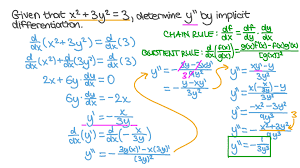 Given that x² + 3y² = 3, determine y'' by implicit
differentiation.
CHAIN RULE: df/dx = df/dy · dy/dx
QUOTIENT RULE: d/dx(f(x)/g(x)) = g(x)f'(x) - f(x)g'(x)/[g(x)]²
d/dx(x² + 3y²) = d/dx(3)
d/dx(x²) + d/dx(3y²) = d/dx(3)
2x + 6y · dy/dx = 0
6y · dy/dx = -2x
y' = -x/3y
d/dx(y') = d/dx(-x/3y)
y'' = -3y(x)' - x(3y)'/(3y)²
y'' = -3y - 3xy'/9y²
= -y - xy'/3y²
y'' = xy' - y/3y²
y'' = x(-x/3y) - y/3y²
y'' = -x² - 3y²/9y³
y'' = -x² + 3y²/9y³
3
y'' = -1/3y³